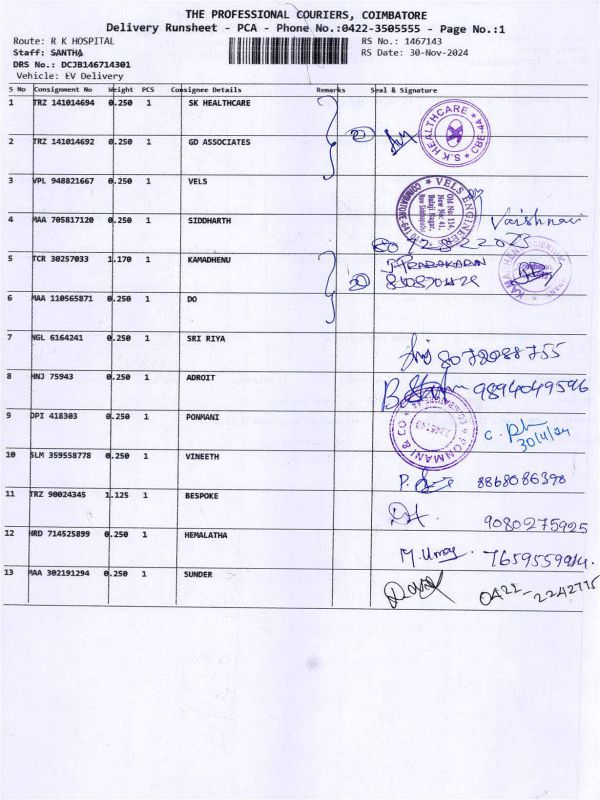 THE PROFESSIONAL COURIERS, COIMBATORE
Delivery Runsheet - PCA - Phone No.:0422-3505555 - Page No.:1
Route: R K HOSPITAL RS No.: 1467143
Staff: SANTHA RS Date: 30-Nov-2024
DRS No.: DCJB146714301
Vehicle: EV Delivery
S No Consignment No Weight PCS Consignee Details Remarks Seal & Signature
1 TRZ 141014694 0.250 1 SK HEALTHCARE
S.K. HEALTHCARE CBE-44
2 TRZ 141014692 0.250 1 GD ASSOCIATES
3 VPL 948821667 0.250 1 VELS
VELS ENGINEERS
Old No: 114,
New No: 41,
Balaji Nagar,
4 MAA 705817120 0.250 1 SIDDHARTH Vaishnavi
5 TCR 30257033 1.170 1 KAMADHENU J. PRABAKARAN
6 MAA 110565871 0.250 1 DO
7 NGL 6164241 0.250 1 SRI RIYA 8072088755
8 HNJ 75943 0.250 1 ADROIT 9894049596
9 DPI 418303 0.250 1 PONMANI
PONMANI & CO
30/11/24
10 SLM 359558778 0.250 1 VINEETH 8868086390
11 TRZ 90024345 1.125 1 BESPOKE 9080275925
12 HRD 714525899 0.250 1 HEMALATHA 7659559914.
13 MAA 302191294 0.250 1 SUNDER 0422-2242775